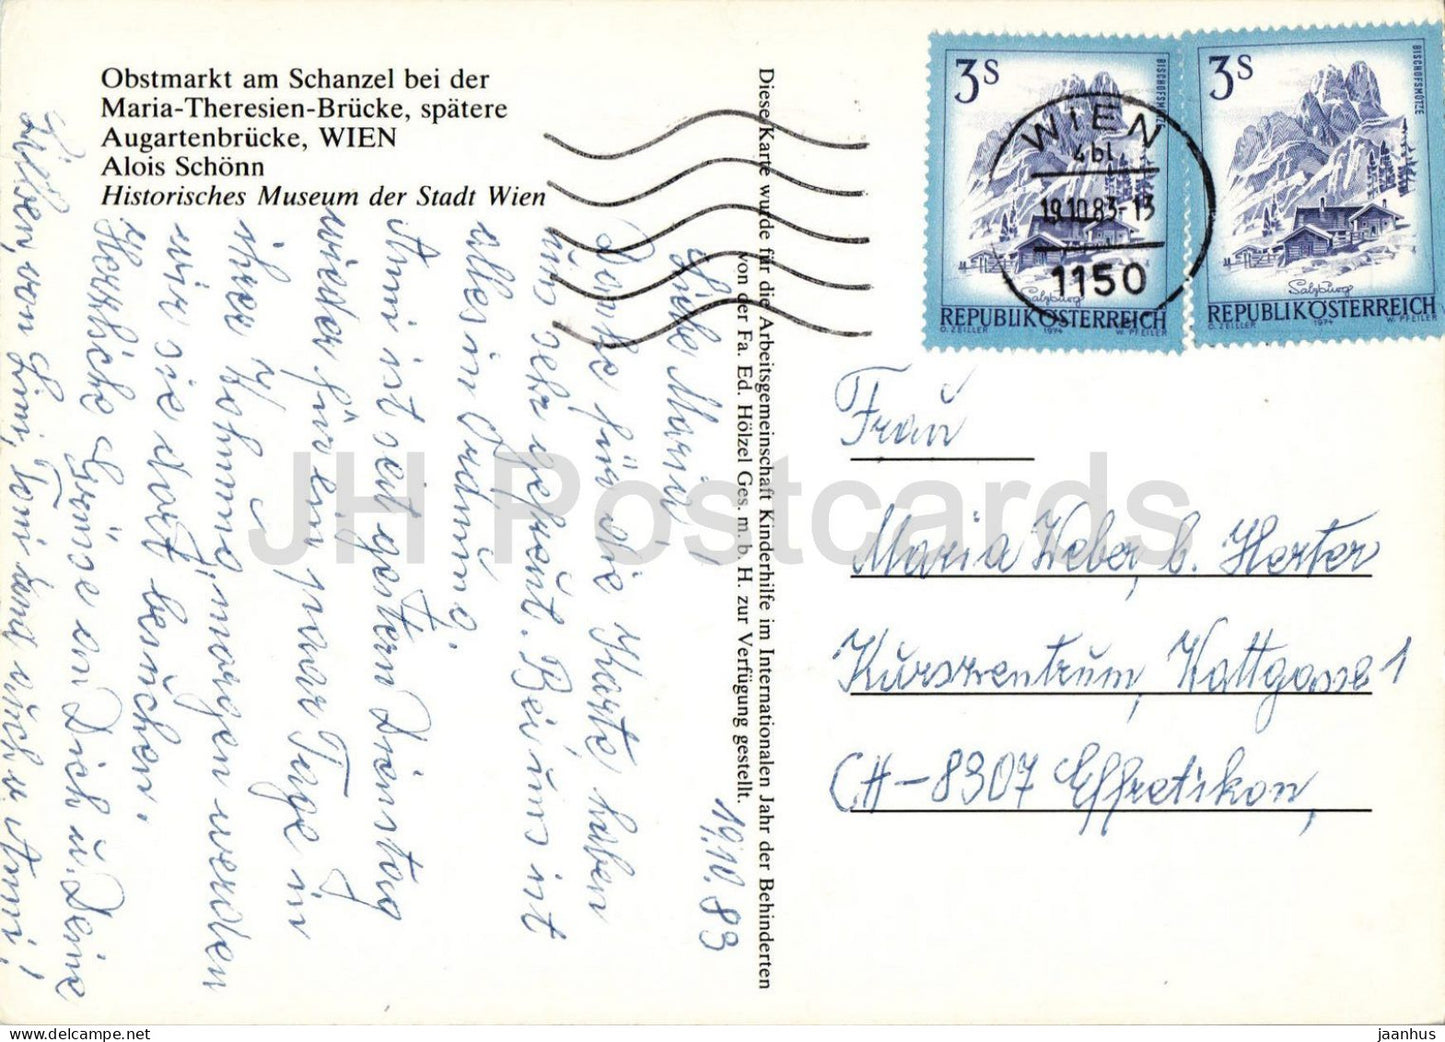 Obstmarkt am Schanzel bei der
Maria-Theresien-Brücke, spätere
Augartenbrücke, WIEN
Alois Schönn
Historisches Museum der Stadt Wien
Diese Karte wurde für die Arbeitsgemeinschaft Kinderhilfe im Internationalen Jahr der Behinderten
von der Fa. Ed. Hölzel Ges. m. b. H. zur Verfügung gestellt.
3S
BISCHOFSMÜTZE
Salzburg
REPUBLIK ÖSTERREICH
O. ZEILLER 1974 W. PFEILER
3S
BISCHOFSMÜTZE
Salzburg
REPUBLIK ÖSTERREICH
O. ZEILLER 1974 W. PFEILER
WIEN
4bl
19.10.83-13
1150
19.10.83
Liebe Maria!
Danke für die Karte haben
uns sehr gefreut. Bei uns ist
alles in Ordnung.
Anni ist seit gestern Dienstag
wieder für ein paar Tage in
ihrer Wohnung, morgen werden
wir sie dort besuchen.
Herzliche Grüsse an Dich u. Deine
Lieben, von Toni und auch v. Anni!
Frau
Maria Weber, b. Herter
Kurszentrum, Wattgasse 1
CH-8307 Effretikon,
JH Postcards
jaanhus